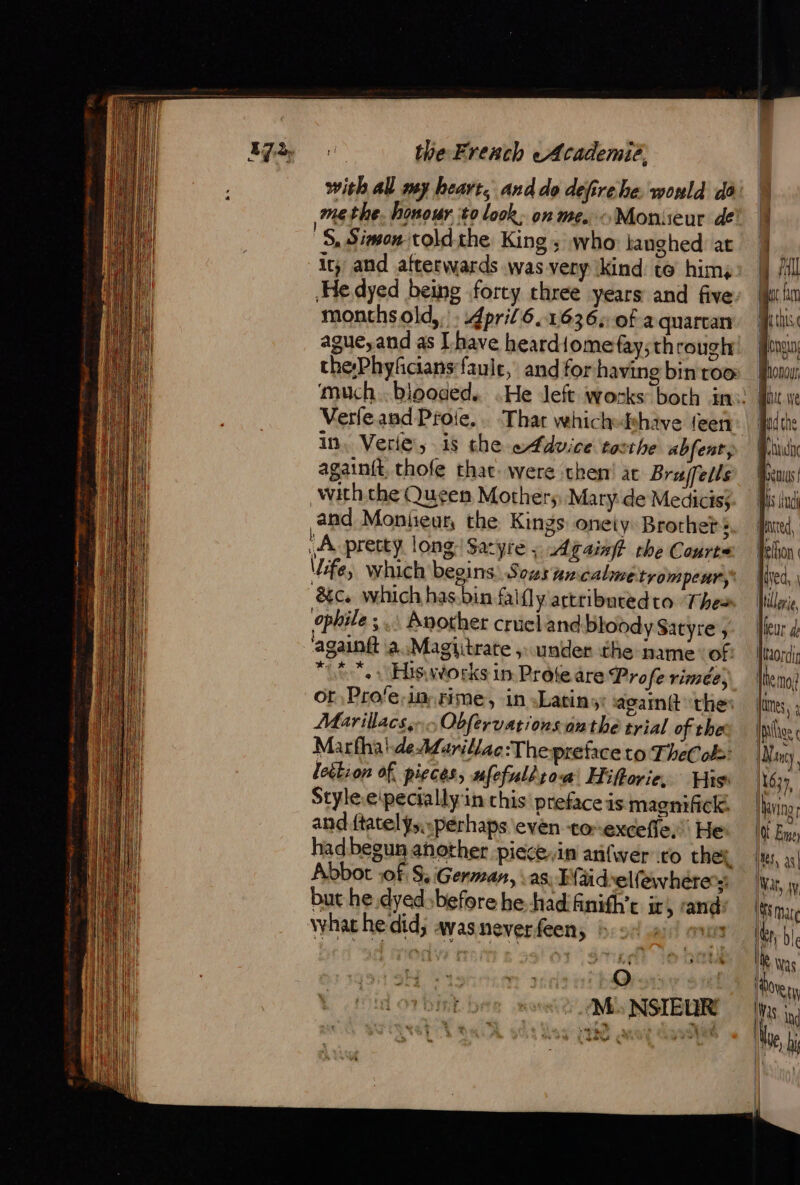 172 the French Academie,
with all my heart, and do desire he would do
me the honour to look on me. Monsieur de
S. Simon told the King; who laughed at
it; and afterwards was very kind to him.
He dyed being forty three years and five
months old, April 6. 1636. of a quartan
ague, and as I have heard some say, through
the Physicians fault, and for having bin too
much blooded. He left works both in
Verse and Prose. That which I have seen
in Verse, is the Advice to the absent,
against those that were then at Brussells
with the Queen Mother, Mary de Medicis;
and Monsieur, the Kings onely Brother:
A pretty long Satyre, Against the Courte
life, which begins Sous un calme trompeur,
&c. which has bin falsly attributed to Theo-
ophile; Another cruel and bloody Satyre,
against a Magistrate, under the name of
* * *. His works in Prose are Prose rimée,
or Prose in rime, in Latin, against the
Marillacs, Observations on the trial of the
Marshal de Marillac: The preface to The Col-
lection of pieces, usefull to a Historie. His
Style especially in this preface is magnifick
and stately, perhaps even to excesse. He
had begun another piece in answer to the
Abbot of S. German, as I said elsewhere;
but he dyed before he had finish't it, and
what he did, was never seen,
MONSIEUR